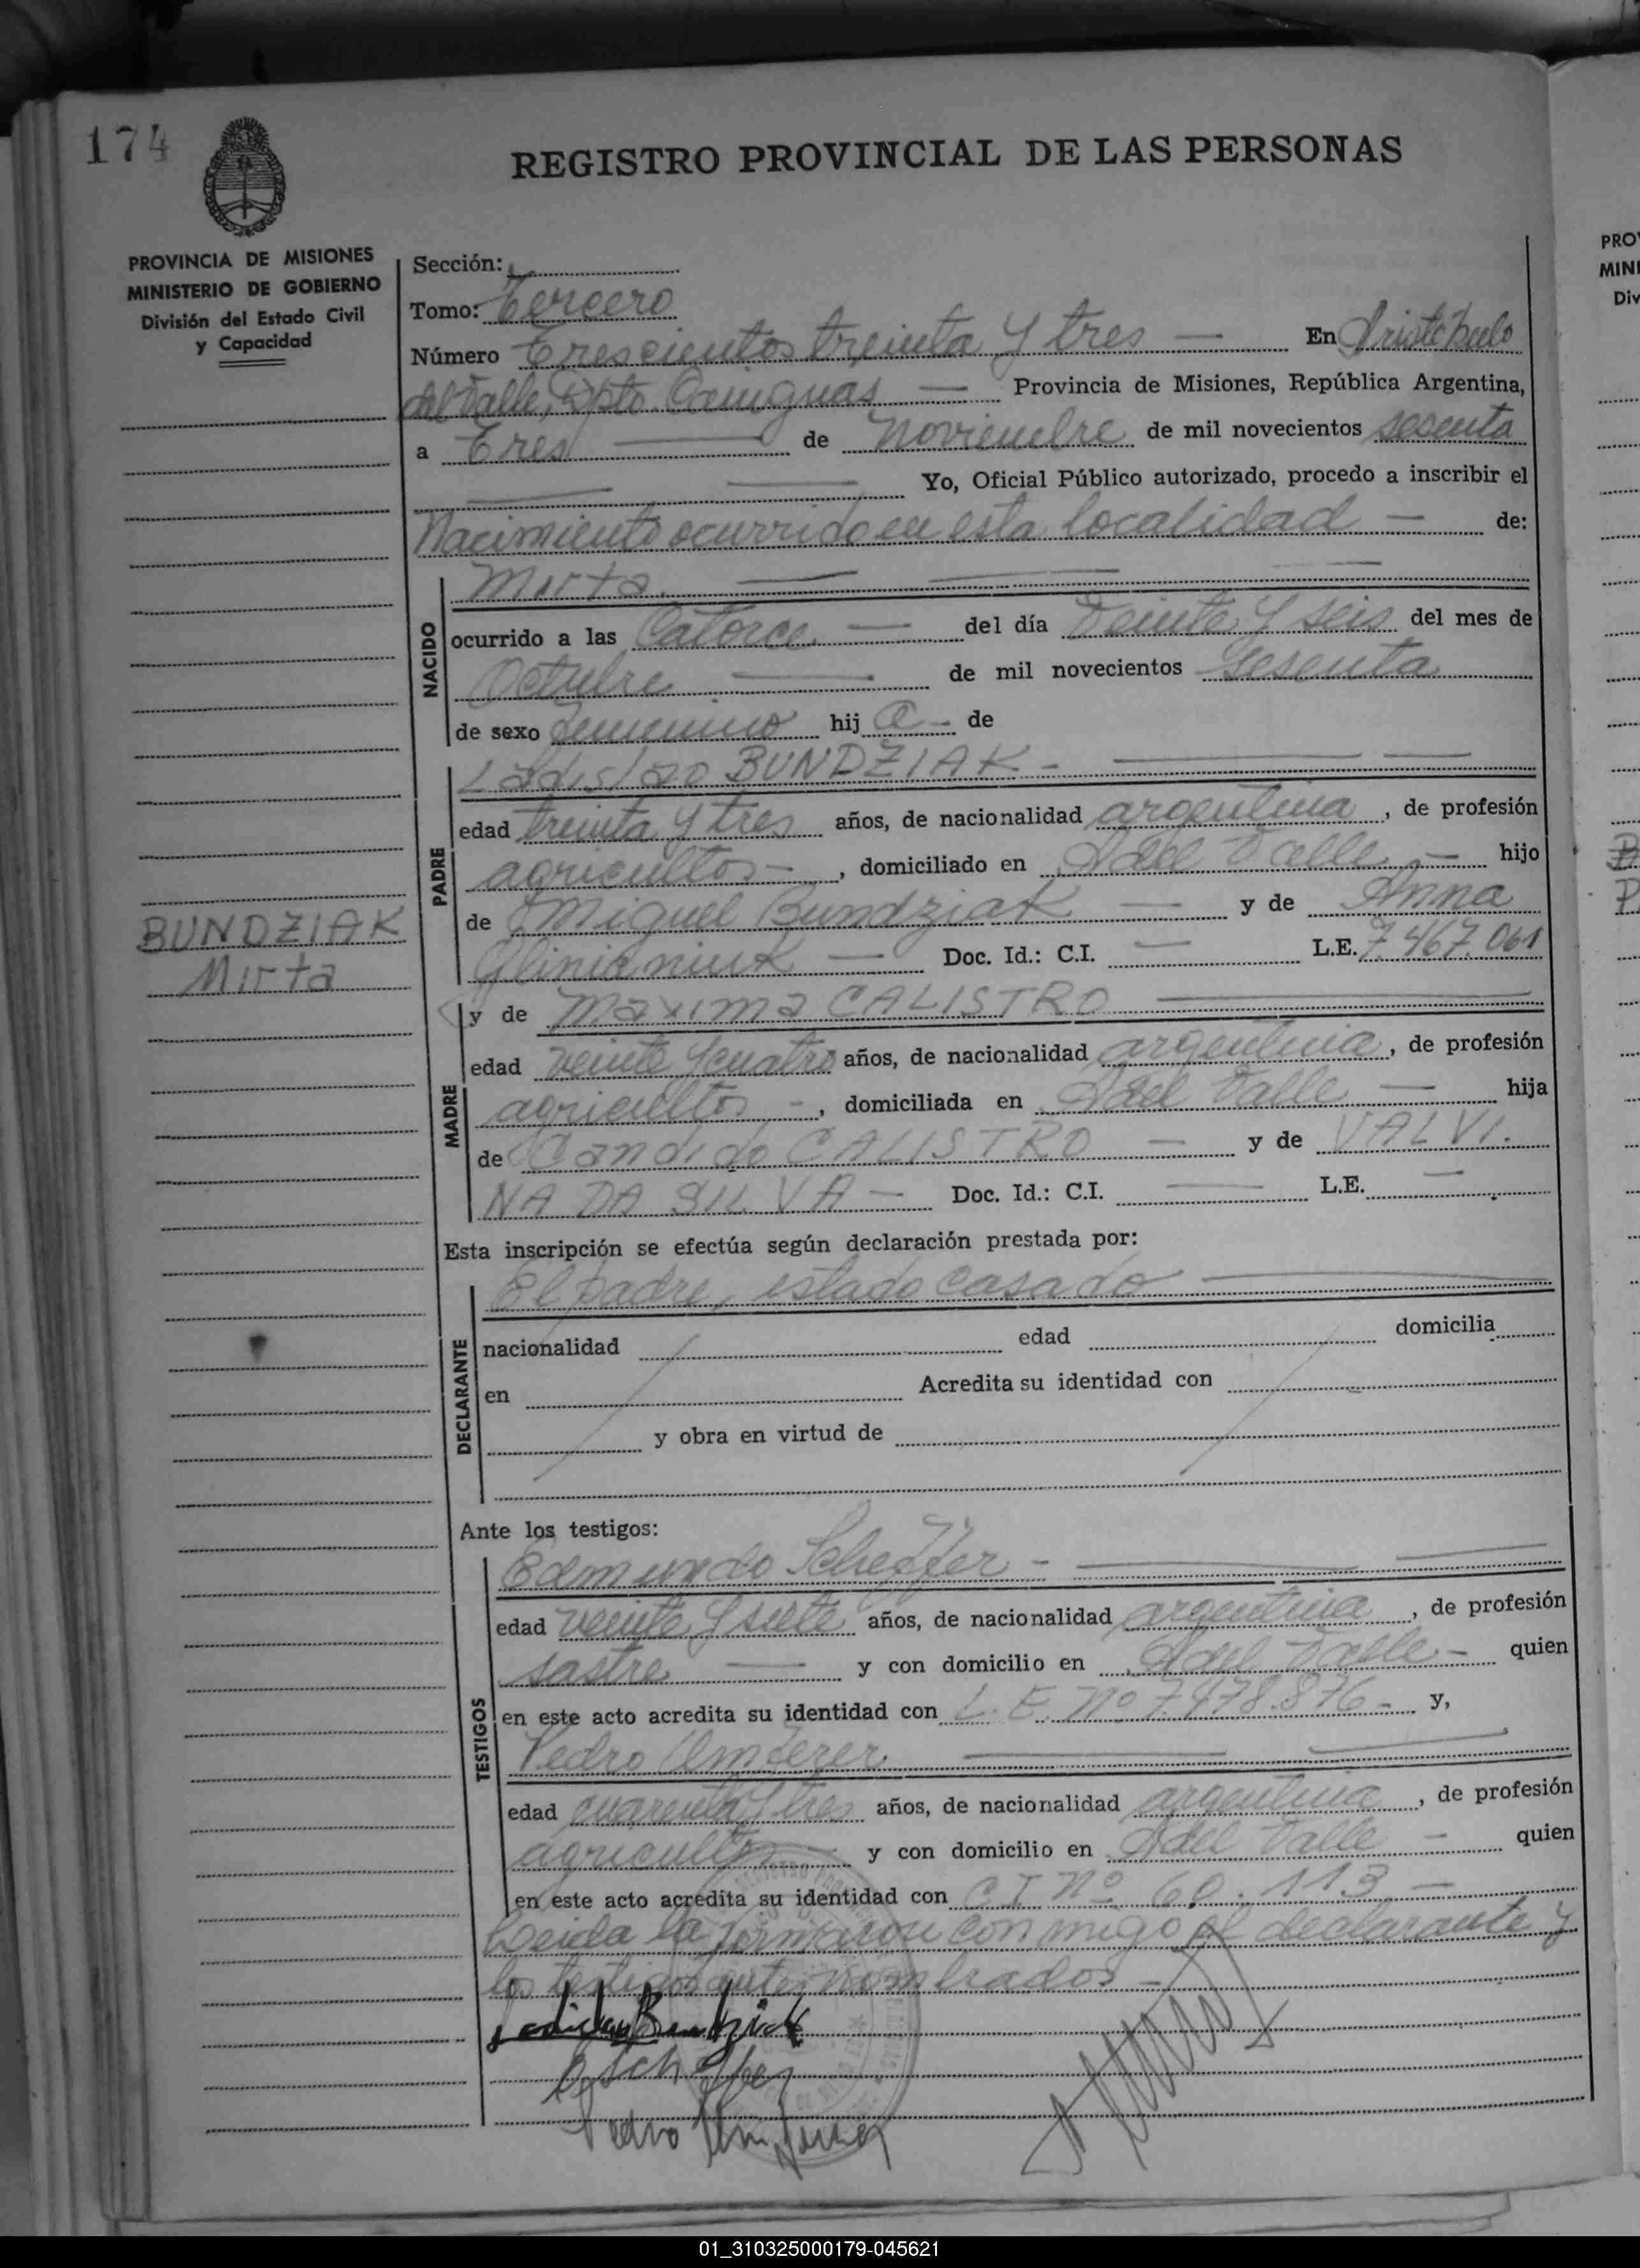 174
REGISTRO PROVINCIAL DE LAS PERSONAS
PROVINCIA DE MISIONES
MINISTERIO DE GOBIERNO
División del Estado Civil
y Capacidad
Sección:
Tomo: Tercero
Número Trescientos treinta y tres — En Aristóbulo
del Valle, Dpto. Cainguas — Provincia de Misiones, República Argentina,
a Tres — de Noviembre de mil novecientos sesenta
Yo, Oficial Público autorizado, procedo a inscribir el
Nacimiento ocurrido en esta localidad — de:
NACIDO
Mirta
ocurrido a las Catorce — del día Veinte y seis del mes de
Octubre — de mil novecientos sesenta
de sexo femenino hij a - de
PADRE
Ladislao BUNDZIAK -
edad treinta y tres años, de nacionalidad argentina, de profesión
agricultor -, domiciliado en A del Valle - hijo
de Miguel Bundziak — y de Anna
— Doc. Id.: C.I. — L.E. 7.467.061
BUNDZIAK
Mirta
MADRE
y de Maxima CALISTRO
edad veinte y cuatro años, de nacionalidad argentina, de profesión
agricultor -, domiciliada en A del Valle — hija
de Candido CALISTRO — y de VALVI.
NA DA SILVA — Doc. Id.: C.I. — L.E. —
Esta inscripción se efectúa según declaración prestada por:
DECLARANTE
El padre, estado casado
nacionalidad edad domicilia
en Acredita su identidad con
y obra en virtud de
Ante los testigos:
TESTIGOS
Edmundo Scheffer -
edad veinte y siete años, de nacionalidad argentina, de profesión
sastre — y con domicilio en A del Valle - quien
en este acto acredita su identidad con L.E. Nº 7.478.876 - y,
Pedro
edad cuarenta y tres años, de nacionalidad argentina, de profesión
agricultor y con domicilio en A del Valle - quien
en este acto acredita su identidad con C I Nº 60.113 —
Leida la firmaron conmigo el declarante y
los testigos antes nombrados -
Ladislao Bundziak
E Scheffer
Pedro
PRO
MINI
Div
01_310325000179-045621